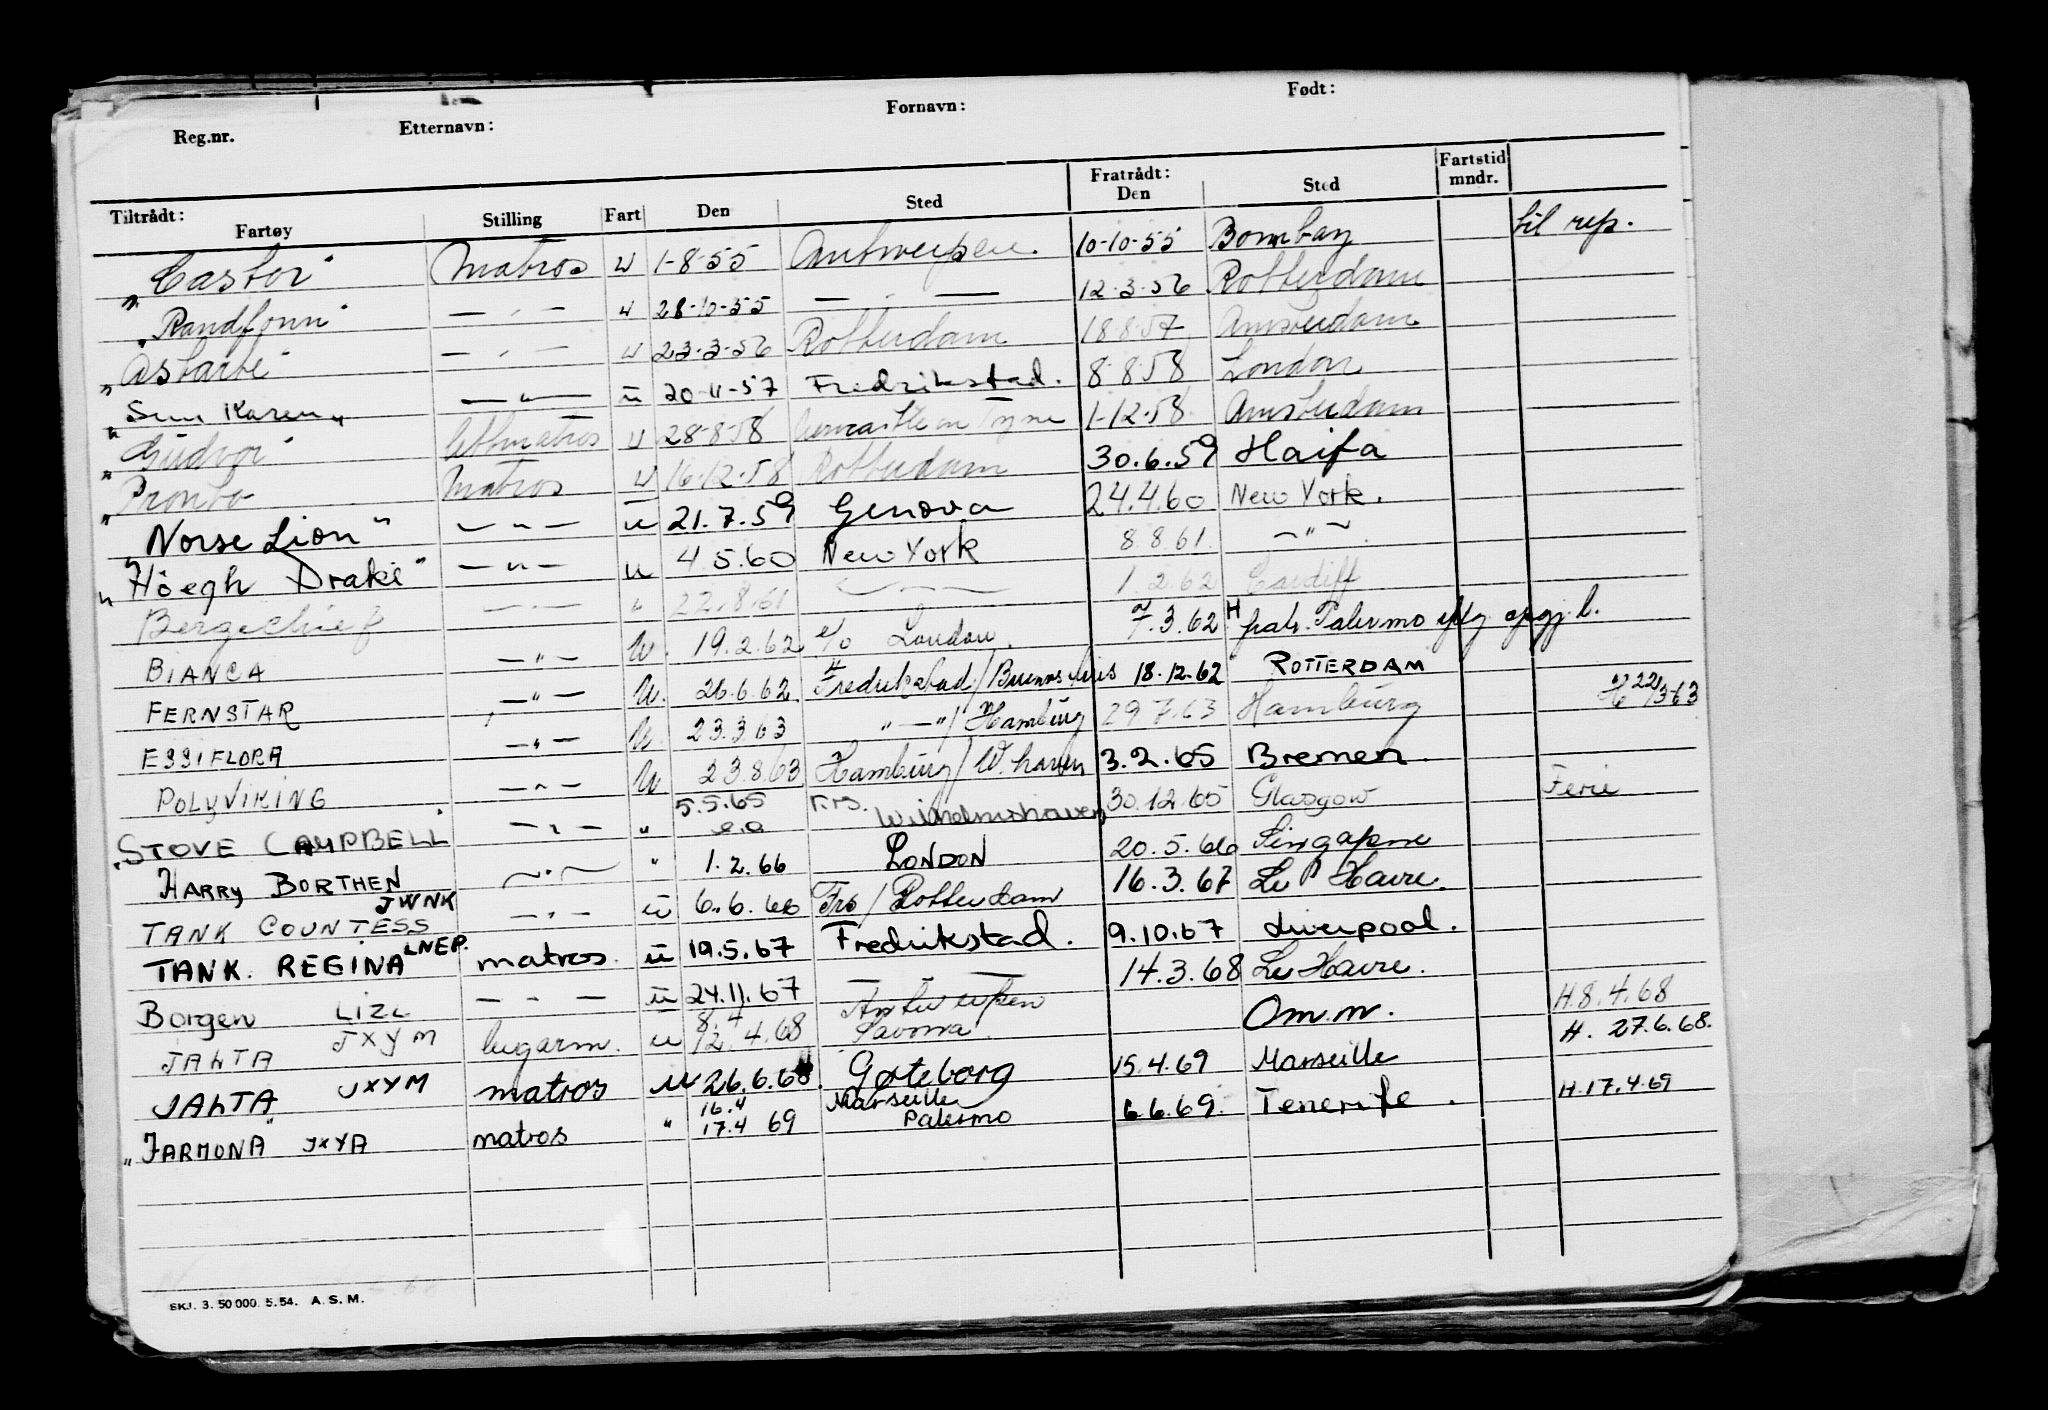 Reg.nr. Etternavn: Fornavn: Født:
Tiltrådt: Fratrådt: Fartstid
Fartøy Stilling Fart Den Sted Den Sted mndr.
"Castor" Matros u 1-8-55 Antwerpen. 10-10-55 Bombay til rep.
"Randfonn" — " — u 28-10-55 — " — 12-3-56 Rotterdam
"Astarte" — " — u 23-3-56 Rotterdam 18-8-57 Amsterdam
"Sun Karen" — " — u 20-11-57 Fredrikstad. 8-8-58 London
"Gudvor" lettmatros u 28-8-58 Newcastle on Tyne 1-12-58 Amsterdam
"Pronto Matros u 16-12-58 Rotterdam 30.6.59 Haifa
"Norse Lion" — " — u 21.7.59 Genova 24.4.60 New York.
"Höegh Drake" — " — u 4.5.60 New York 8.8.61. — " —
Bergechief — " — " 22.8.61 — " — 1.2.62 Cardiff
BIANCA — " — U. 19.2.62 e/o London. 7.3.62 H fratr. Palermo iflg oppgj. l.
FERNSTAR — " — U. 26.6.62 Fredrikstad/Buenos Aires 18.12.62 ROTTERDAM
ESSIFLORA — " — U. 23.3.63 " — "/Hamburg 29.7.63 Hamburg H 22/3-63
POLYVIKING — " — U 23.8.63 Hamburg/W.haven 3.2.65 Bremen
"STOVE CAMPBELL" — " — " 5.5.65 e.o Frs. Wilhelmshaven 30.12.65 Glasgow Ferie
HARRY BORTHEN — " — " 1.2.66 LONDON 20.5.66 Singapore
TANK COUNTESS JWNK — " — u 6.6.66 Frs/Rotterdam 16.3.67 Le Havre.
TANK. REGINA LNEP. matros. u 19.5.67 Fredrikstad. 9.10.67 Liverpool.
Borgen LIZL — " — u 24.11.67 — 14.3.68 Le Havre.
JALTA JXYM lugarm. u 8.4 12.4.68 Antwerpen Savona Om.m. H.8.4.68
JALTA JXYM matros u 26.6.68. Gøteborg 15.4.69 Marseille H. 27.6.68.
"JARMONA" JXYA matros " 16.4 17.4 69 Marseille Palermo 6.6.69. Tenerife. H.17.4.69
SKJ. 3. 50 000. 5.54. A. S. M.